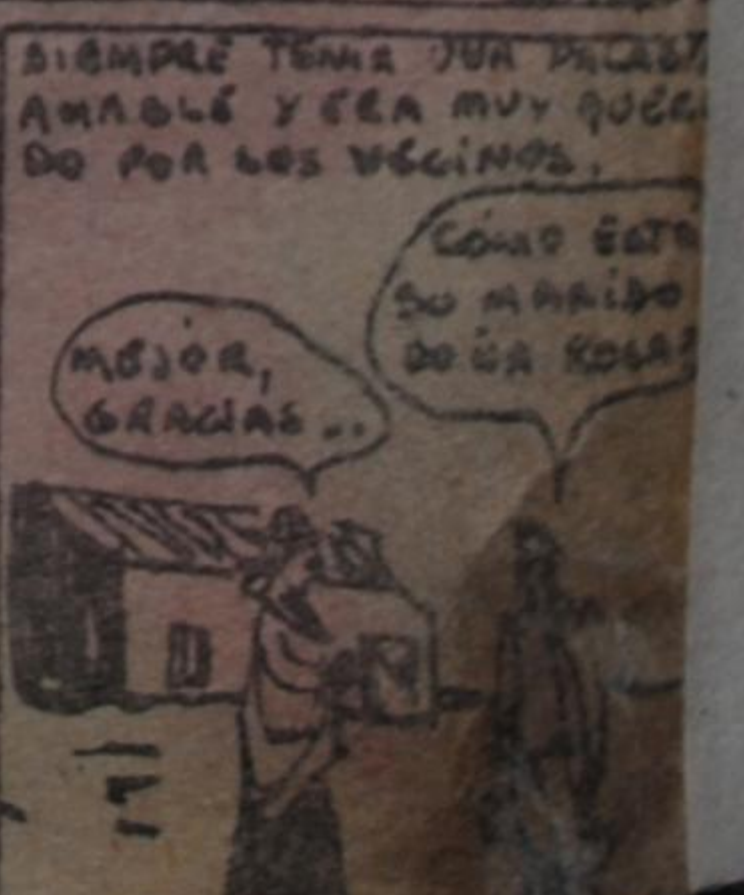 SIEMPRE TENIA UNA PALABRA
AMABLE Y ERA MUY QUERI
DO POR LOS VECINOS.
CÓMO ESTÁ
SU MARIDO
DOÑA ROSA?
MEJOR,
GRACIAS...